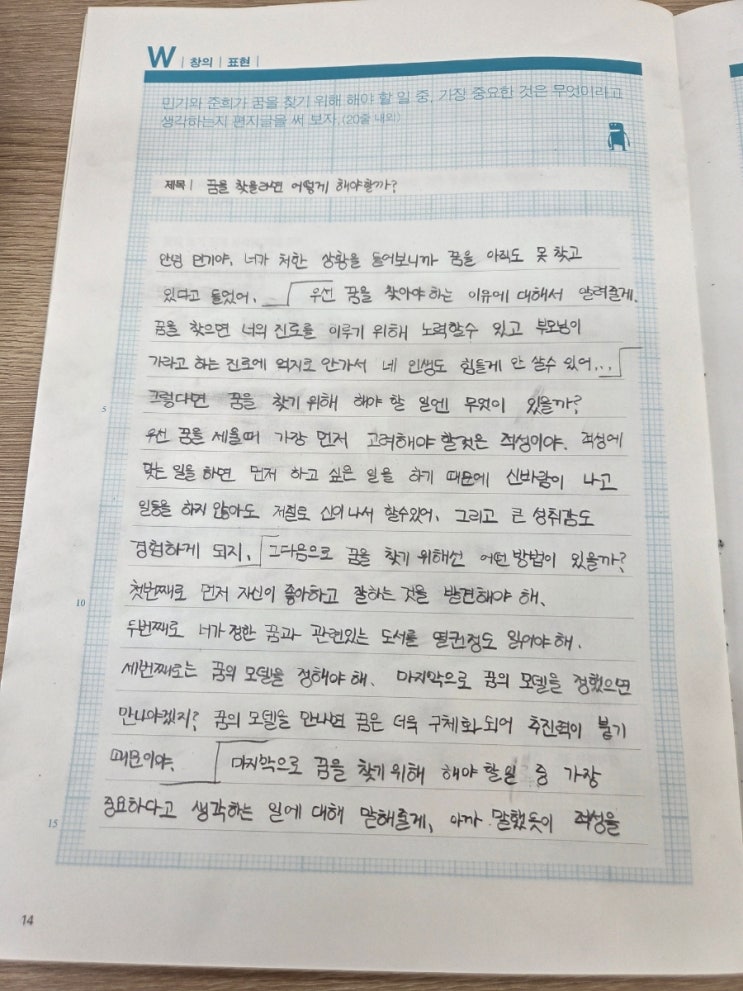 W | 창의 | 표현 |
민기와 준희가 꿈을 찾기 위해 해야 할 일 중, 가장 중요한 것은 무엇이라고
생각하는지 편지글을 써 보자.(20줄 내외)
제목 | 꿈을 찾을라면 어떻게 해야할까?
안녕 민기야. 너가 처한 상황을 들어보니까 꿈을 아직도 못 찾고
있다고 들었어. 우선 꿈을 찾아야 하는 이유에 대해서 알려줄게.
꿈을 찾으면 너의 진로를 이루기 위해 노력할수 있고 부모님이
가라고 하는 진로에 억지로 안가서 네 인생도 힘들게 안 살수 있어...
그렇다면 꿈을 찾기 위해 해야 할 일엔 무엇이 있을까?
5
우선 꿈을 세울때 가장 먼저 고려해야 할것은 적성이야. 적성에
맞는 일을 하면 먼저 하고 싶은 일을 하기 때문에 신바람이 나고
일등을 하지 않아도 저절로 신이 나서 할수있어. 그리고 큰 성취감도
경험하게 되지. 그다음으로 꿈을 찾기 위해선 어떤 방법이 있을까?
첫번째로 먼저 자신이 좋아하고 잘하는 것을 발견해야 해.
10
두번째로 너가 정한 꿈과 관련있는 도서를 열권정도 읽어야 해.
세번째로는 꿈의 모델을 정해야 해. 마지막으로 꿈의 모델을 정했으면
만나야겠지? 꿈의 모델을 만나면 꿈은 더욱 구체화 되어 추진력이 붙기
때문이야. 마지막으로 꿈을 찾기 위해 해야 할일 중 가장
중요하다고 생각하는 일에 대해 말해줄게, 아까 말했듯이 적성을
15
14